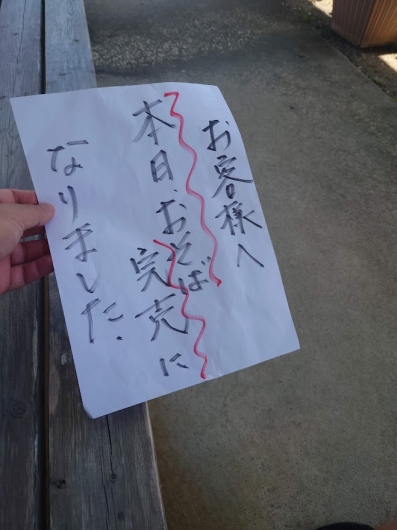 お客様へ
本日、おそば
完売に
なりました.